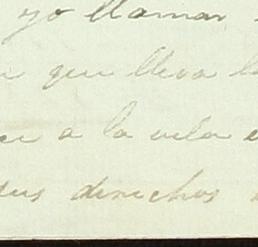 yo llamar
que lleva l
a la vela e
sus derechos